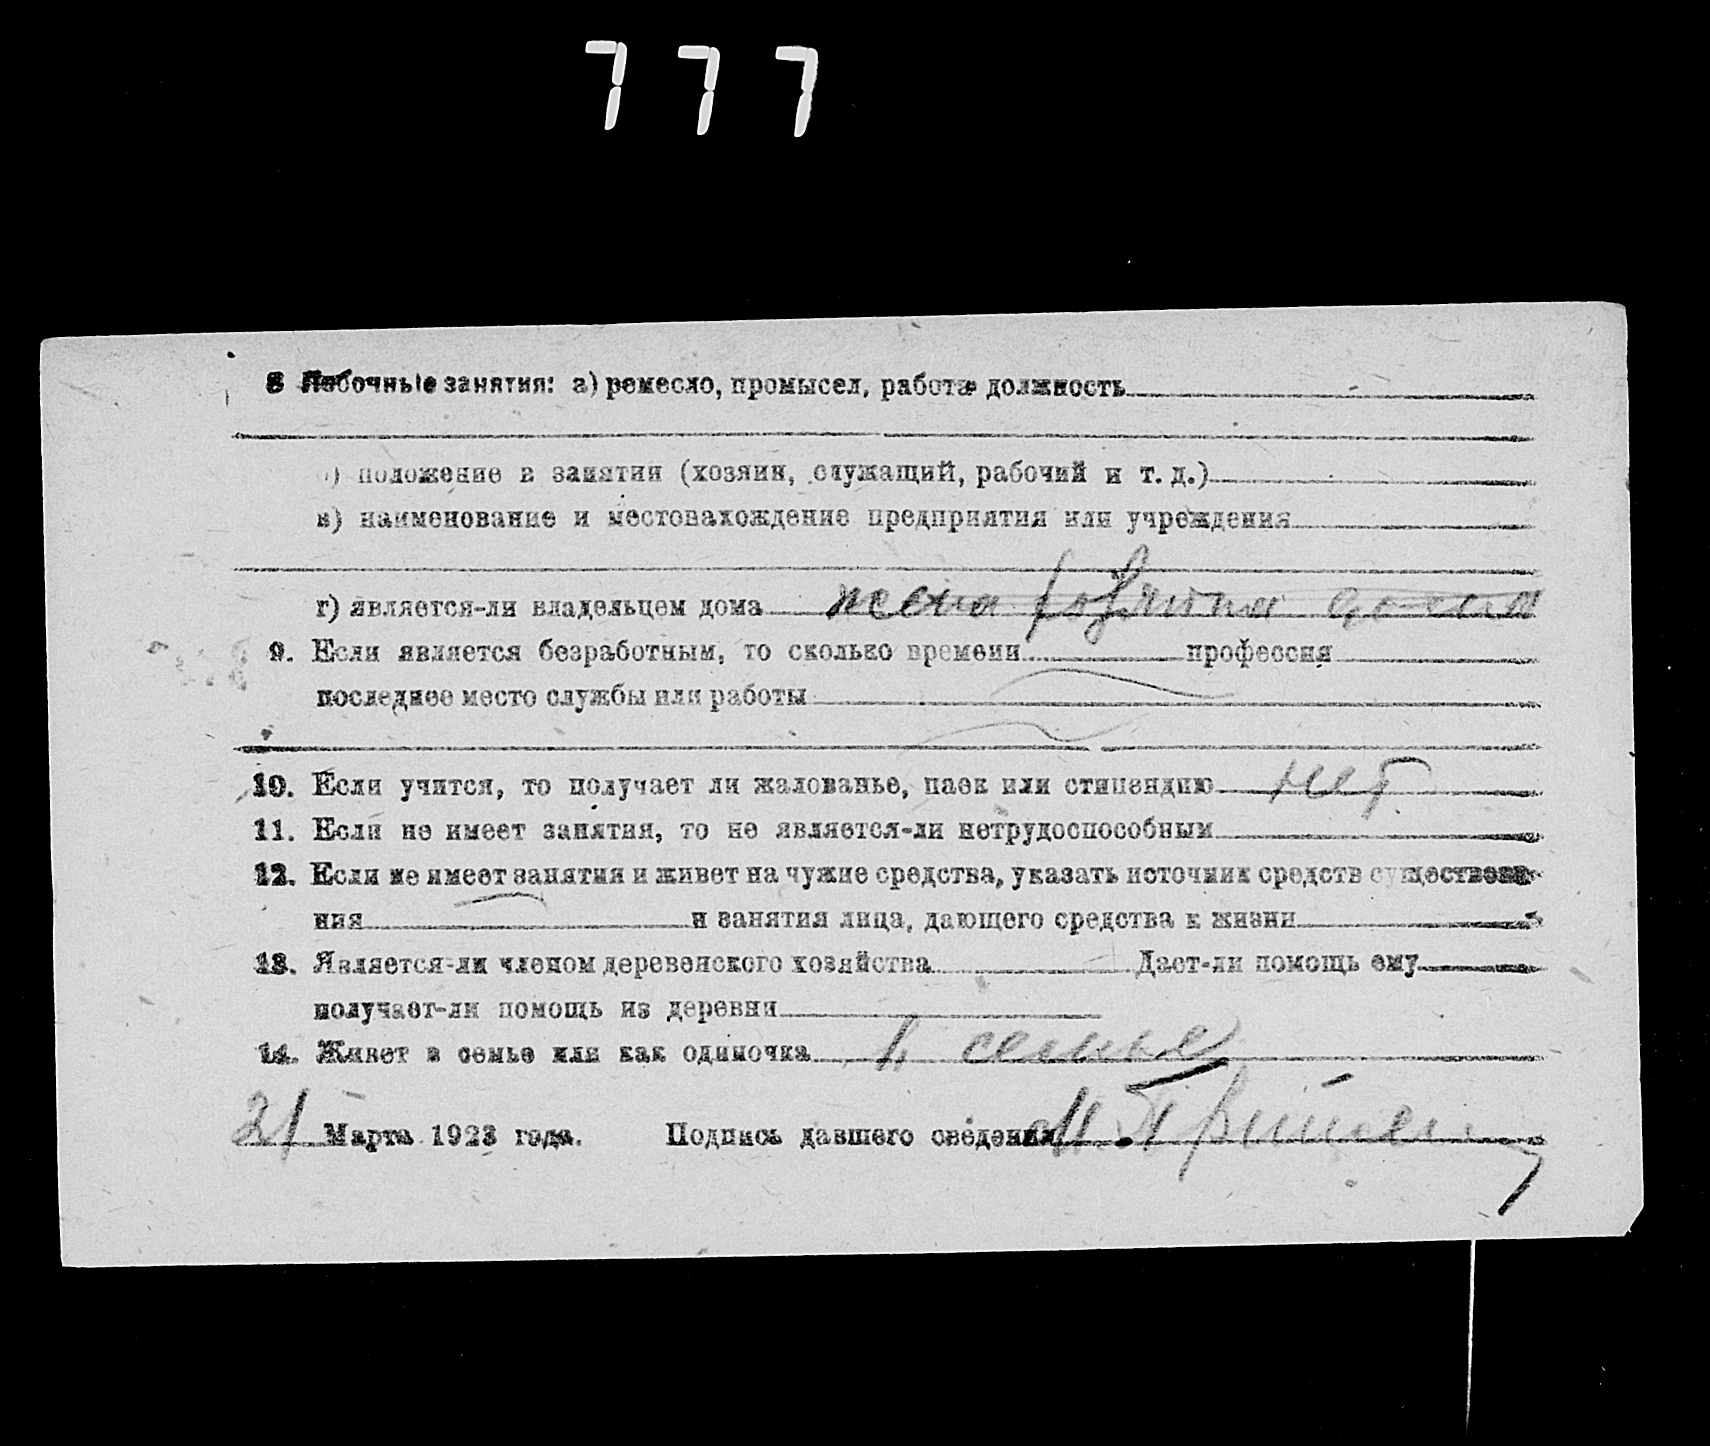 777
8 Побочные занятия: а) ремесло, промысел, работа должность
б) положение в занятии (хозяин, служащий, рабочий и т. д.)
в) наименование и местовахождение предприятия или учреждения
г) является-ли владельцем дома жена хозяина дома
9. Если является безработным, то сколько времени профессия
последнее место службы или работы
10. Если учится, то получает ли жалованье, паек или стипендию нет
11. Если не имеет занятия, то не является-ли нетрудоспособным
12. Если не имеет занятия и живет на чужие средства, указать источник средств существова-
ния и занятия лица, дающего средства к жизни
13. Является-ли членом деревенского хозяйства Дает-ли помощь ему
получает-ли помощь из деревни
14. Живет в семье или как одиночка в семье
21 Марта 1923 года. Подпись давшего сведения М.